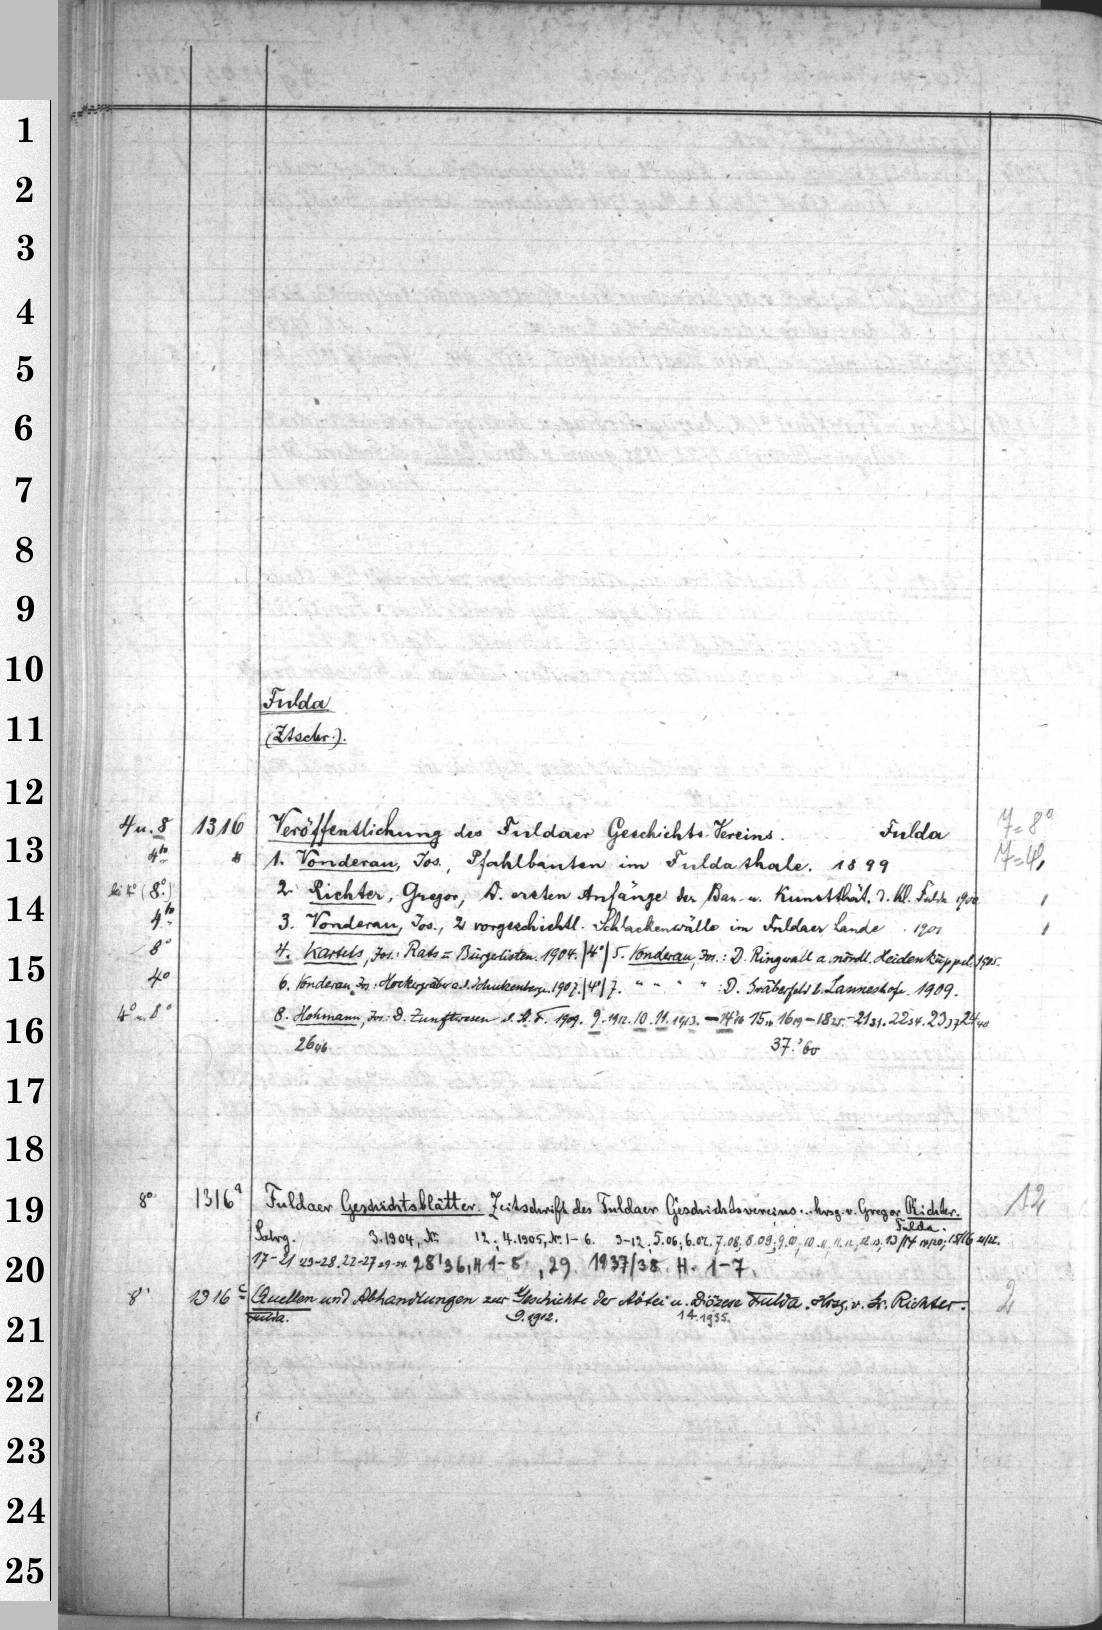 1
2
3
4
5
6
7
8
9
10
11
12
13
14
15
16
17
18
19
20
21
22
23
24
25
Fulda
(Ztschr.).
4 u. 8 1316 Veröffentlichung des Fuldaer Geschichts-Vereins. Fulda 7=8°
4to 1. Vonderau, Jos., Pfahlbauten im Fuldathale. 1899 7=4°
(8°) 2. Richter, Gregor, D. ersten Anfänge der Bau- u. Kunstthät. d. Kl. Fulda 1900 1
4to 3. Vonderau, Jos., 2 vorgeschichtl. Schlackenwälle im Fuldaer Lande. 1901 1
8° 4. Kartels, Jos.: Rats= Bürgerlisten. 1904. |4°| 5. Vonderau, Jos.: D. Ringwall a. nördl. Heidenküppel. 1905.
4° 6. Vonderau, Jos.: Hockergräber a. d. Schulzenberge. 1907. |4°| 7. " " " " : D. Gräberfeld b. Lanneshof. 1909.
4° u. 8° 8. Hohmann, Jos.: D. Zunftwesen d. St. F. 1909. 9. 1912. 10. 11. 1913. —14
26 46 37. '60
8° 1316a Fuldaer Geschichtsblätter. Zeitschrift des Fuldaer Geschichtsvereins. hrsg. v. Gregor Richter. 12
Fulda.
Jahrg. 3. 1904, Nr. 12; 4. 1905, Nr. 1-6. 5.06; 6.07; 7.08; 8.09;
17-21 28 '36, H 1-5, 29. 1937/38. H. 1-7.
8° 1316c Quellen und Abhandlungen zur Geschichte der Abtei u. Diözese Fulda. Hrsg. v. Gr. Richter. 2
Fulda. 9. 1912. 14. 1935.